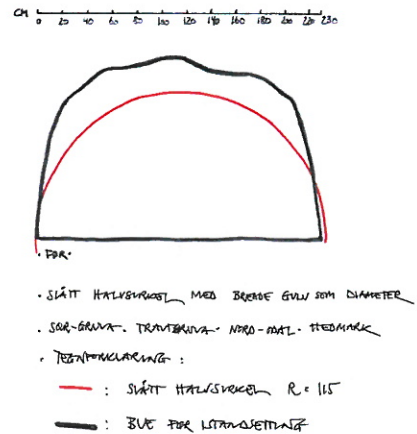 CM 0 20 40 60 80 100 120 140 160 180 200 220 230
• FØR •
• SLÅTT HALVSIRKEL MED BREDDE GULV SOM DIAMETER
• SØR-GRUVA • TRAUTBRUVA • NORD-ODAL • HEDMARK
• TEGNFORKLARING :
: SLÅTT HALVSIRKEL R = 115
: BUE FØR ISTANDSETTING